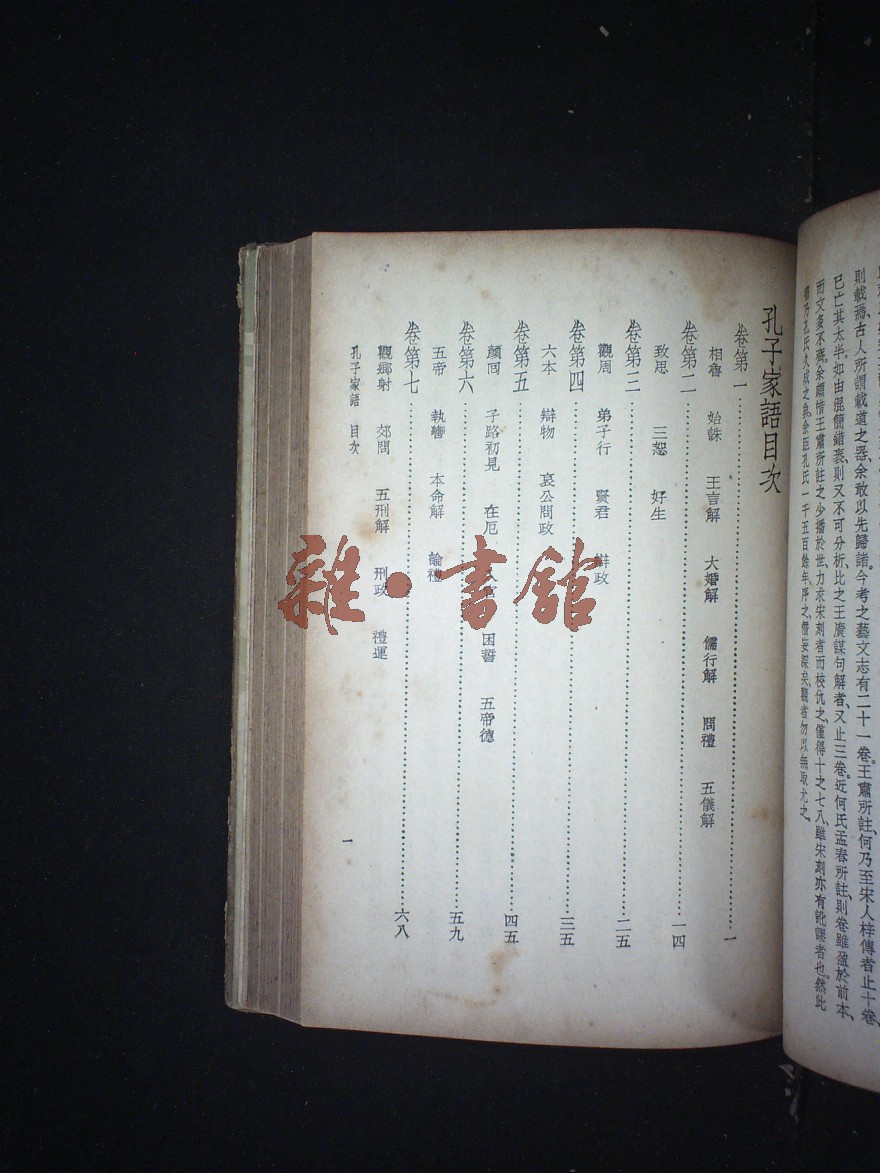 則載焉、古人所謂載道之器、余敢以先歸諸。今考之藝文志有二十一卷。王肅所註、何乃至宋人梓傳者止十卷、
已亡其太半。如由混簡錯袠、則又不可分析、比之王廣謀句解者、又止三卷。近何氏孟春所註、則卷雖盈於前本、
而文多不厤。余頗惜王肅所註之少播於世、力求宋刻者而校仇之、僅得十之七八、雖宋刻亦有訛謬者也。然此
書乃孔氏久成之典、余距孔氏一千五百餘年、序之、僭妄深矣、觀者勿以無取尤之、
孔子家語目次
卷第一 一
相魯 始誅 王言解 大婚解 儒行解 問禮 五儀解
卷第二 一四
致思 三恕 好生
卷第三 二五
觀周 弟子行 賢君 辯政
卷第四 三五
六本 辯物 哀公問政
卷第五 四五
顏回 子路初見 在厄 困誓 五帝德
卷第六 五九
五帝 執轡 本命解 論禮
卷第七 六八
觀鄉射 郊問 五刑解 刑政 禮運
孔子家語 目次
一
雜·書館